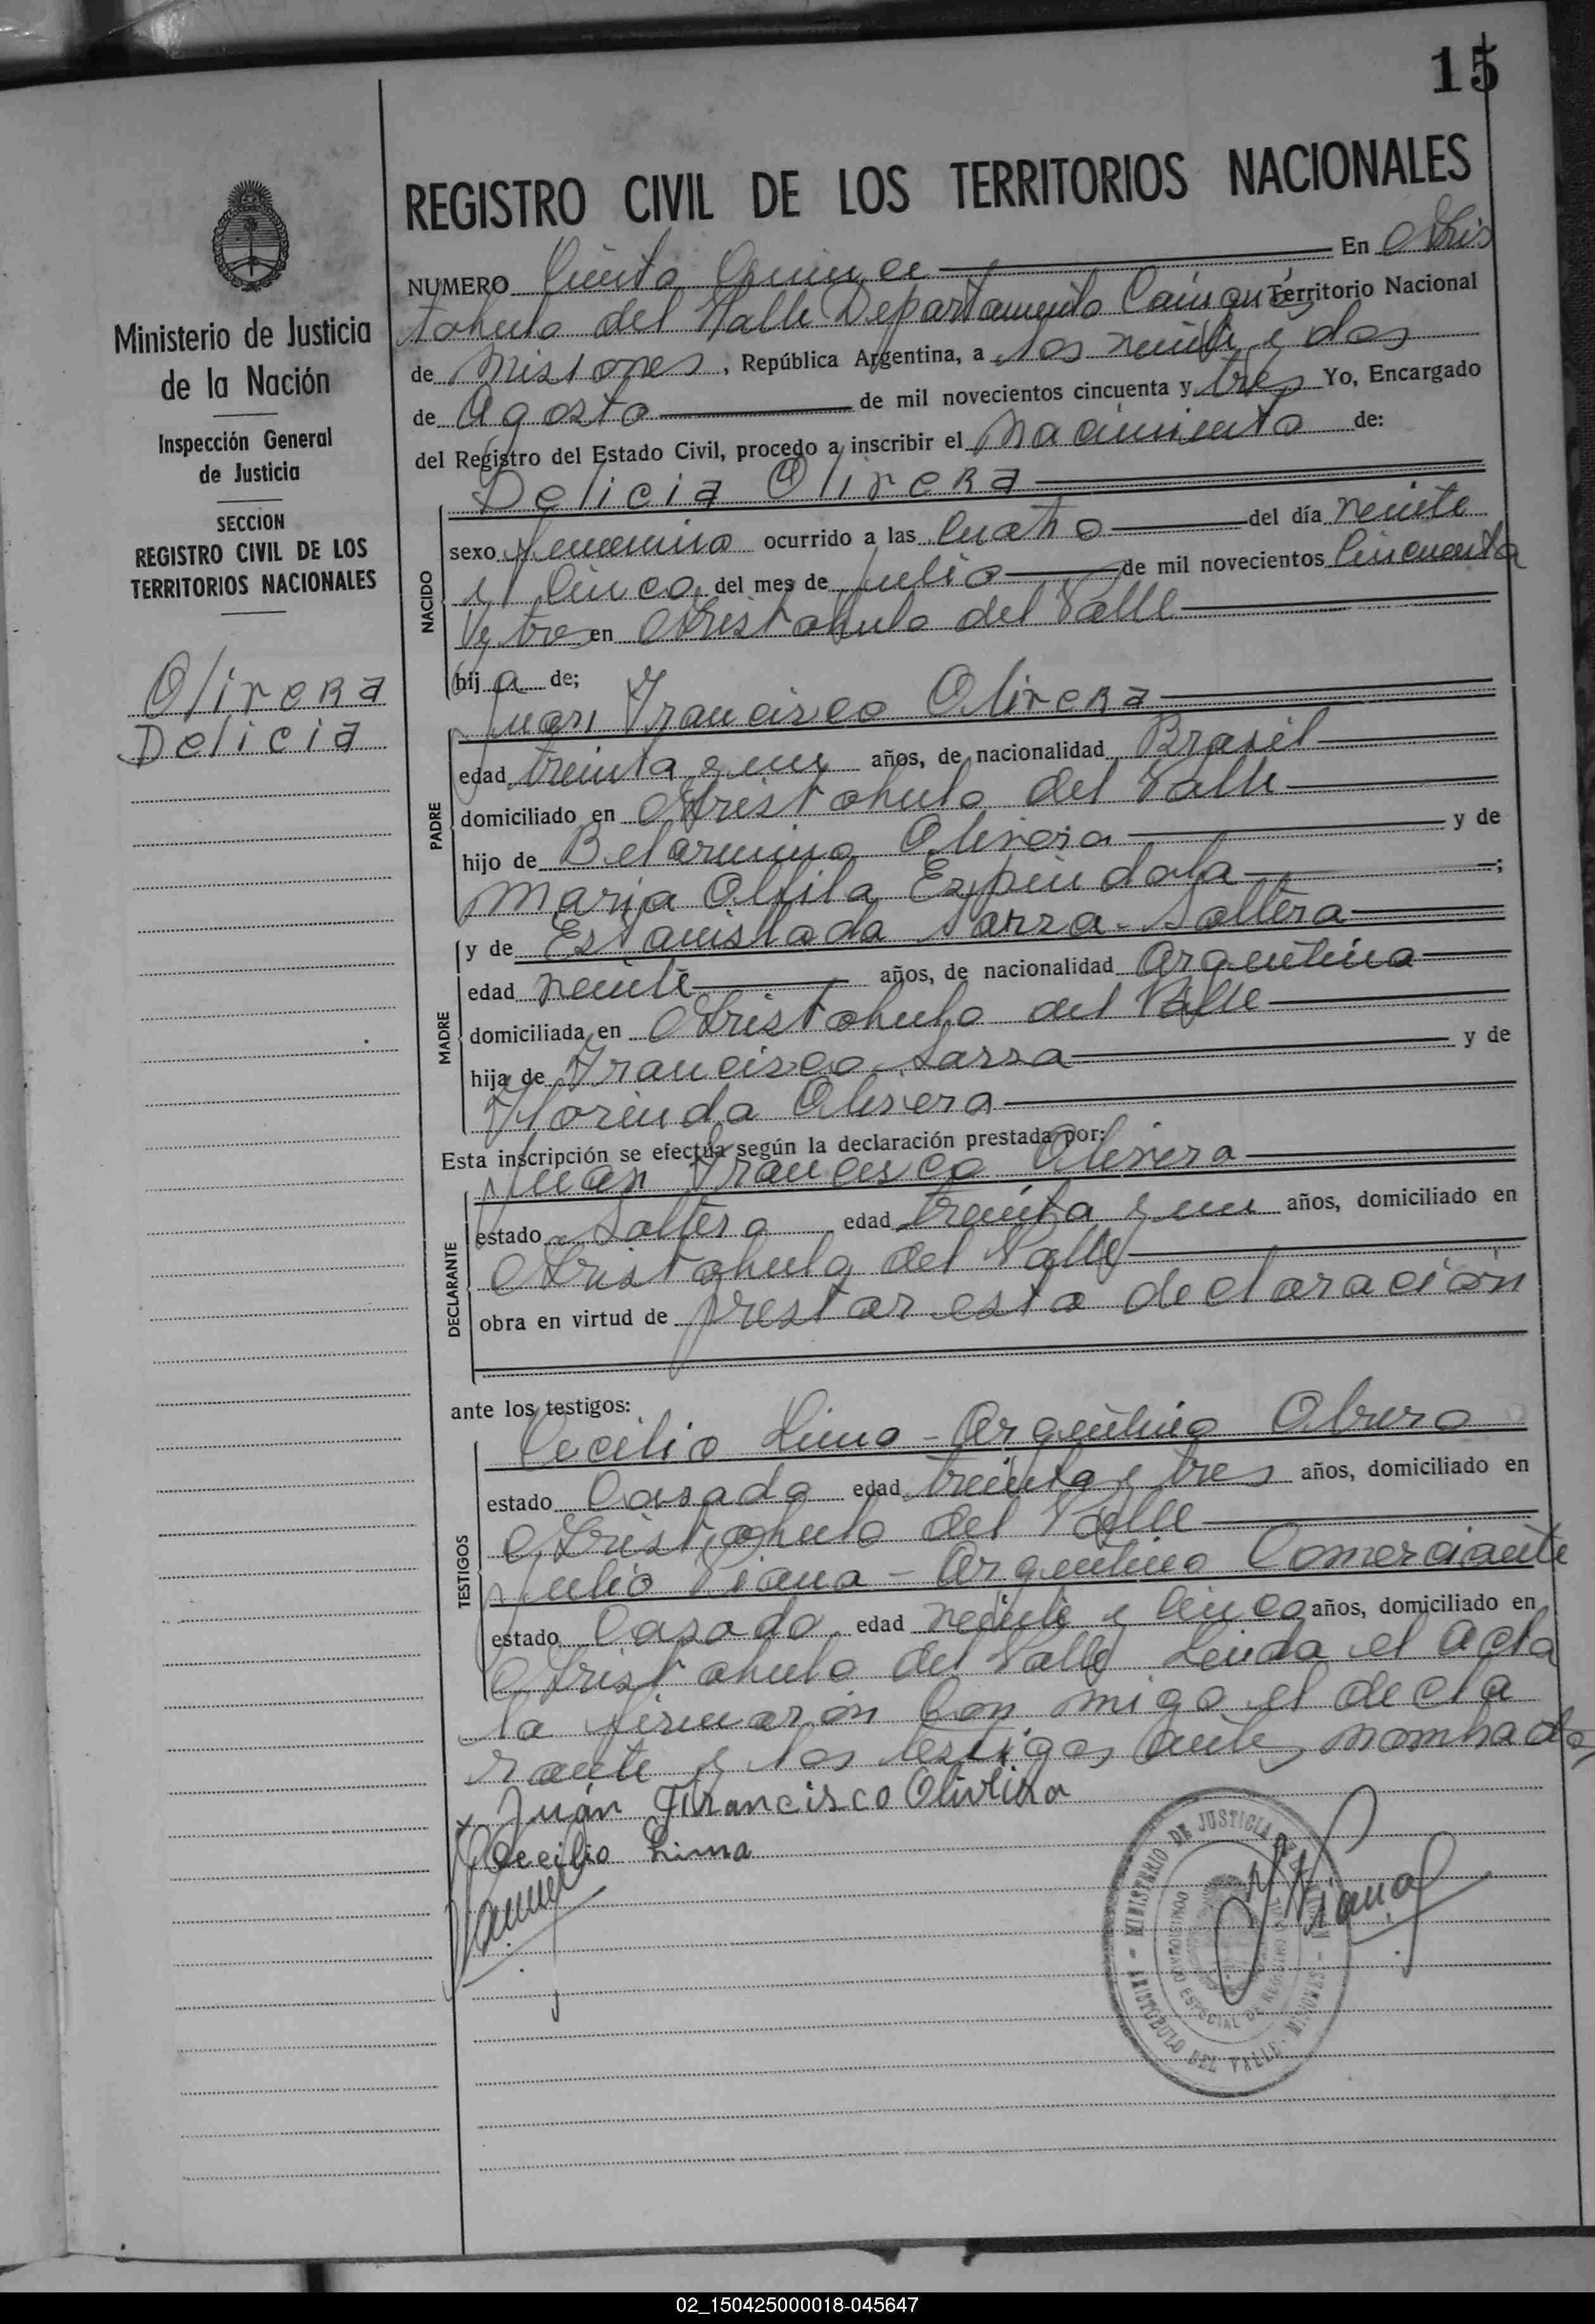 15
REGISTRO CIVIL DE LOS TERRITORIOS NACIONALES
Ministerio de Justicia
de la Nación
Inspección General
de Justicia
SECCION
REGISTRO CIVIL DE LOS
TERRITORIOS NACIONALES
Olivera
Delicia
NUMERO Ciento Quince En Aris
tobulo del Valle Departamento Cainguas Territorio Nacional
de Misiones, República Argentina, a los veinte y dos
de Agosto de mil novecientos cincuenta y tres Yo, Encargado
del Registro del Estado Civil, procedo a inscribir el nacimiento de:
NACIDO
Delicia Olivera
sexo femenino ocurrido a las cuatro del día veinte
y cinco del mes de julio de mil novecientos cincuenta
y tres en Aristobulo del Valle
hij a de;
PADRE
Juan Francisco Olivera
edad treinta y un años, de nacionalidad Brasil
domiciliado en Aristobulo del Valle
hijo de Belarmino Olivera y de
Maria Espindola;
MADRE
y de Estanislada Sarza - Soltera
edad veinte años, de nacionalidad Argentina
domiciliada en Aristobulo del Valle
hija de Francisco Sarza y de
Florinda Olivera
Esta inscripción se efectúa según la declaración prestada por:
DECLARANTE
Juan Francisco Olivera
estado Soltero edad treinta y un años, domiciliado en
Aristobulo del Valle
obra en virtud de prestar esta declaracion
ante los testigos:
TESTIGOS
Cecilio Lima - Argentino Obrero
estado Casado edad treinta y tres años, domiciliado en
Aristobulo del Valle
Julio Viana - Argentino Comerciante
estado Casado edad veinte y cinco años, domiciliado en
Aristobulo del Valle Leida el Acta
la firmarón con migo el decla
rante y los testigos ante nombrado
x Juán Francisco Oliveira
Cecilio Lima
Viana
MINISTERIO DE JUSTICIA DE LA NACION - ARISTOBULO DEL VALLE - MISIONES -
02_150425000018-045647